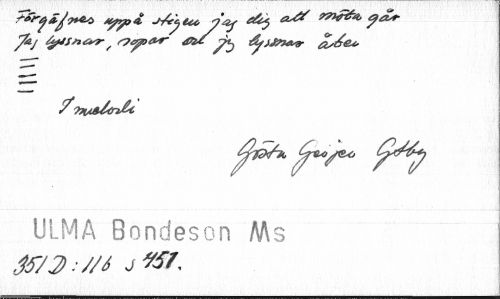 Förgäfves uppå stigen jag dig att möta går
Jag lyssnar, ropar och jag lyssnar åter
1 melodi
Gösta Geijer Gtbg
ULMA Bondeson Ms
351 D : 11 b s 451.